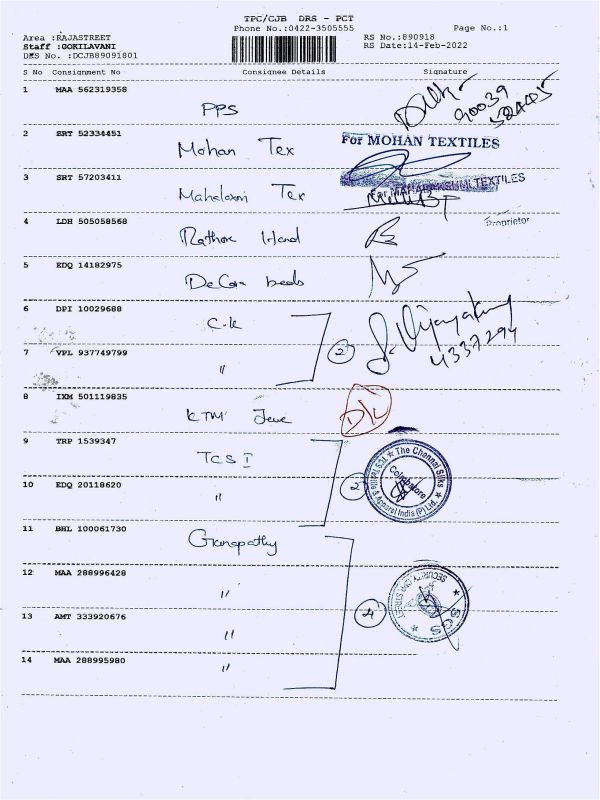 TPC/CJB DRS - PCT
Phone No.:0422-3505555
Page No.:1
Area :RAJASTREET
Staff :GOKILAVANI
DRS No. :DCJB89091801
RS No.:890918
RS Date:14-Feb-2022
S No Consignment No Consignee Details Signature
1 MAA 562319358 PPS
90039
2 SRT 52334451 Mohan Tex
For MOHAN TEXTILES
3 SRT 57203411 Mahalaxmi Tex
For MAHALAKSHMI TEXTILES
Proprietor
4 LDH 505058568 Rathore Hand
5 EDQ 14182975 DeCor beds
6 DPI 10029688 C.K
7 VPL 937749799 "
2
S. Vijayakumar
4337294
8 IXM 501119835 KTM
D/L
9 TRP 1539347 TCS I
10 EDQ 20118620 "
2
The Chennai Silks
TCS Textile & Apparel India (P) Ltd.
Coimbatore
11 BHL 100061730 Ganapathy
12 MAA 288996428 "
13 AMT 333920676 "
14 MAA 288995980 "
4
SGS
SECURITY
STREET